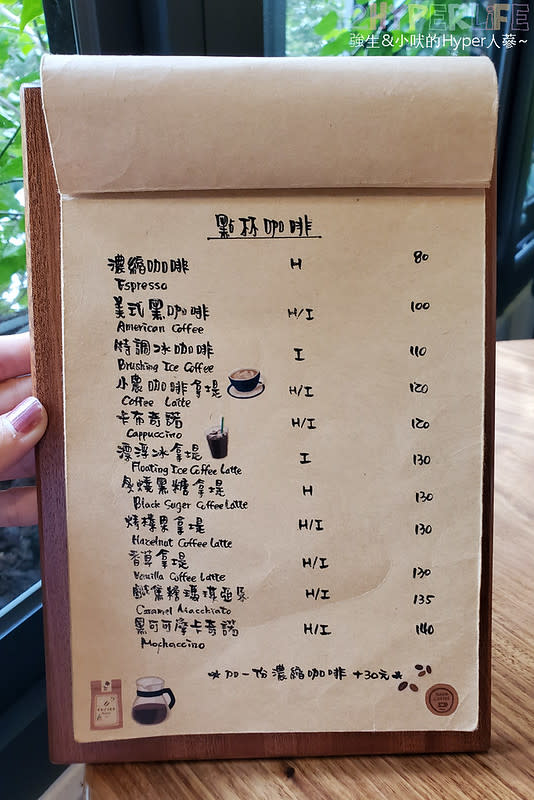 HYPERLIFE
強生&小吠的Hyper人蔘~
點杯咖啡
濃縮咖啡 H 80
Espresso
美式黑咖啡 H/I 100
American Coffee
特調冰咖啡 I 110
Brushing Ice Coffee
小農咖啡拿堤 H/I 120
Coffee Latte
卡布奇諾 H/I 120
Cappuccino
漂浮冰拿堤 I 130
Floating Ice Coffee Latte
炙燒黑糖拿堤 H 130
Black Suger Coffee Latte
烤榛果拿堤 H/I 130
Hazelnut Coffee Latte
香草拿堤 H/I 130
Vanilla Coffee Latte
鹹焦糖瑪琪亞朵 H/I 135
Caramel Macchiato
黑可可摩卡奇諾 H/I 140
Mochaccino
*加一份濃縮咖啡 +30元*